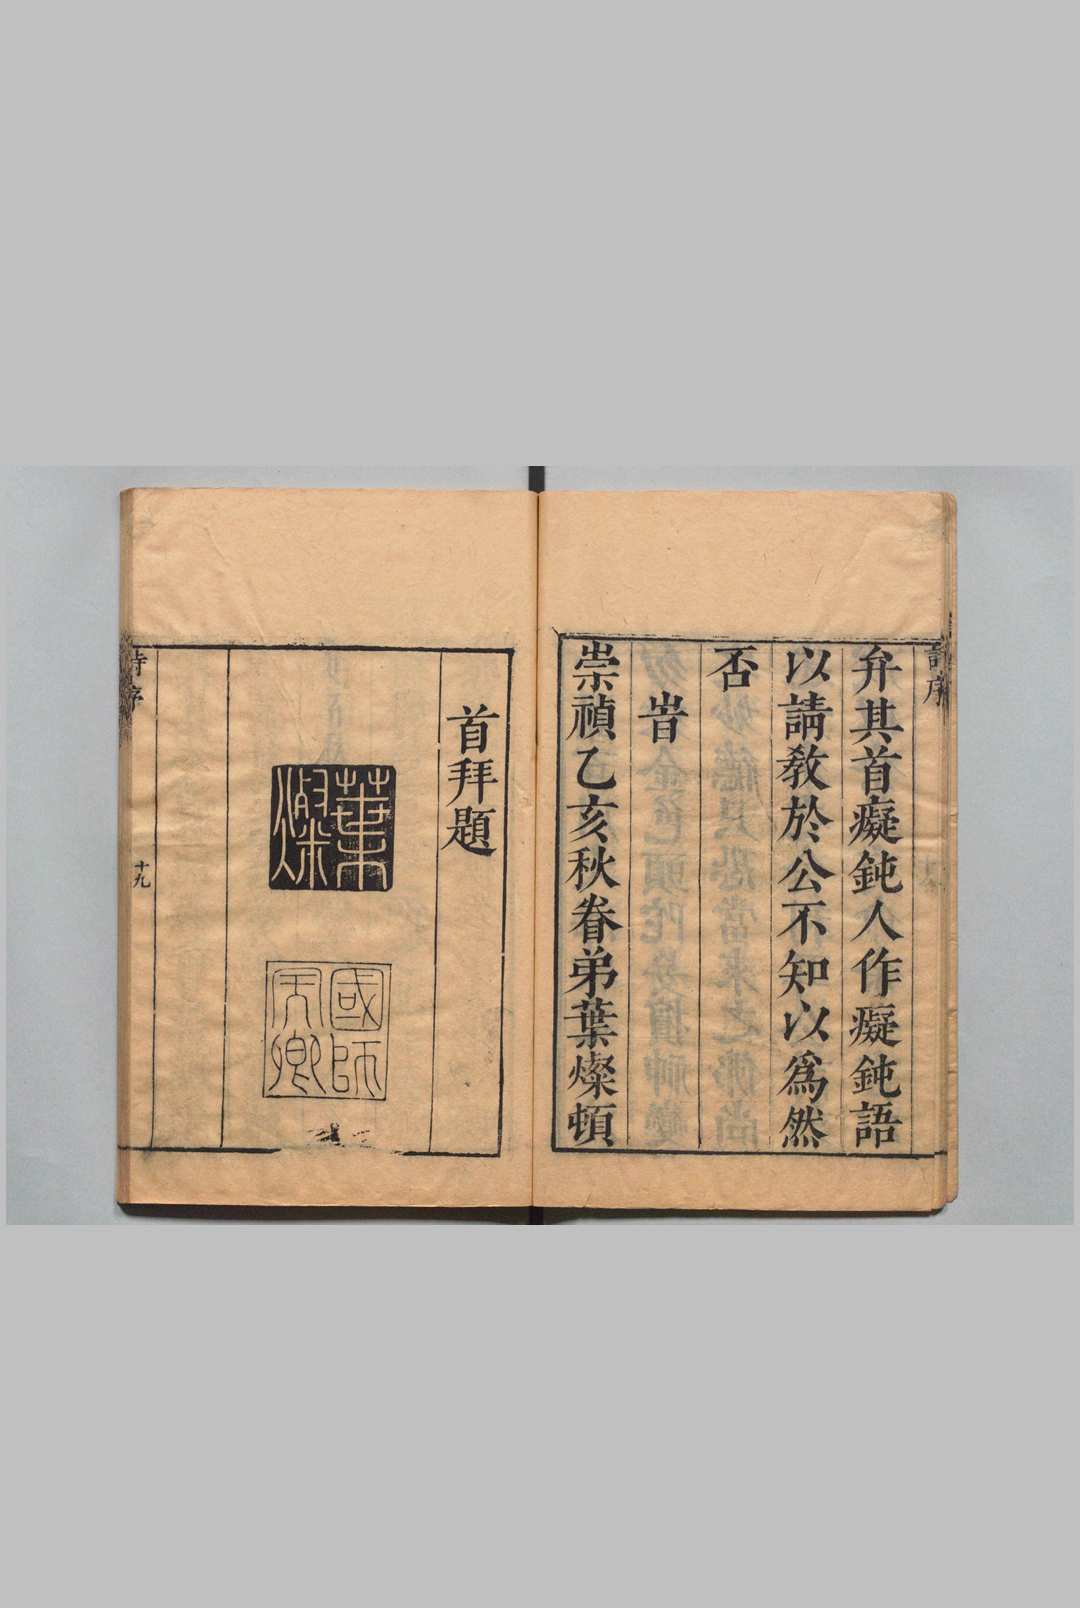 弁其首癡鈍人作癡鈍語
以請敎於公不知以爲然
否
旹
崇禎乙亥秋眷弟葉燦頓
首拜題
葉燦
國師天卿
詩序
十九